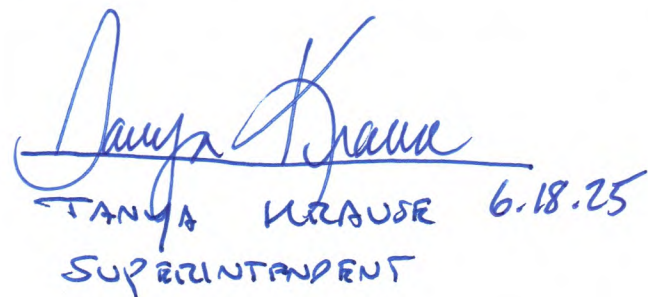 Tanya Krause
TANYA KRAUSE 6.18.25
SUPERINTENDENT